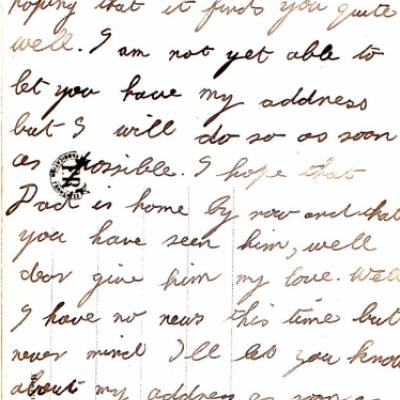 hoping that it finds you quite
well. I am not yet able to
let you have my address
but I will do so as soon
as possible. I hope that
Dad is home by now and that
you have seen him, well
dear give him my love. Well
I have no news this time but
never mind I'll let you know
about my address as soon a